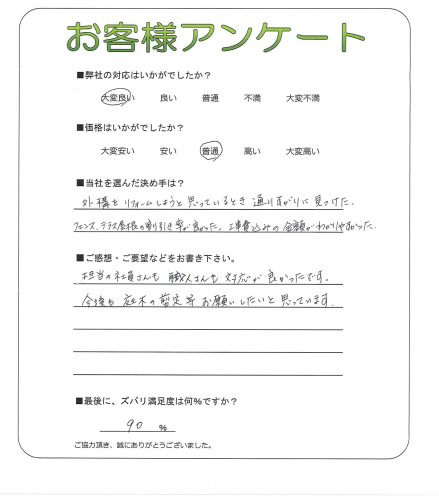 お客様アンケート
■弊社の対応はいかがでしたか？
大変良い 良い 普通 不満 大変不満
■価格はいかがでしたか？
大変安い 安い 普通 高い 大変高い
■当社を選んだ決め手は？
外構をリフォームしようと思っているとき通りすがりに見つけた.
フェンス、テラス屋根の割り引き率が良かった、工事費込みの金額がわかりやすかった.
■ご感想・ご要望などをお書き下さい。
担当の社員さんも職人さんも対応が良かったです.
今後も庭木の剪定等お願いしたいと思っています.
■最後に、ズバリ満足度は何％ですか？
90 %
ご協力頂き、誠にありがとうございました。